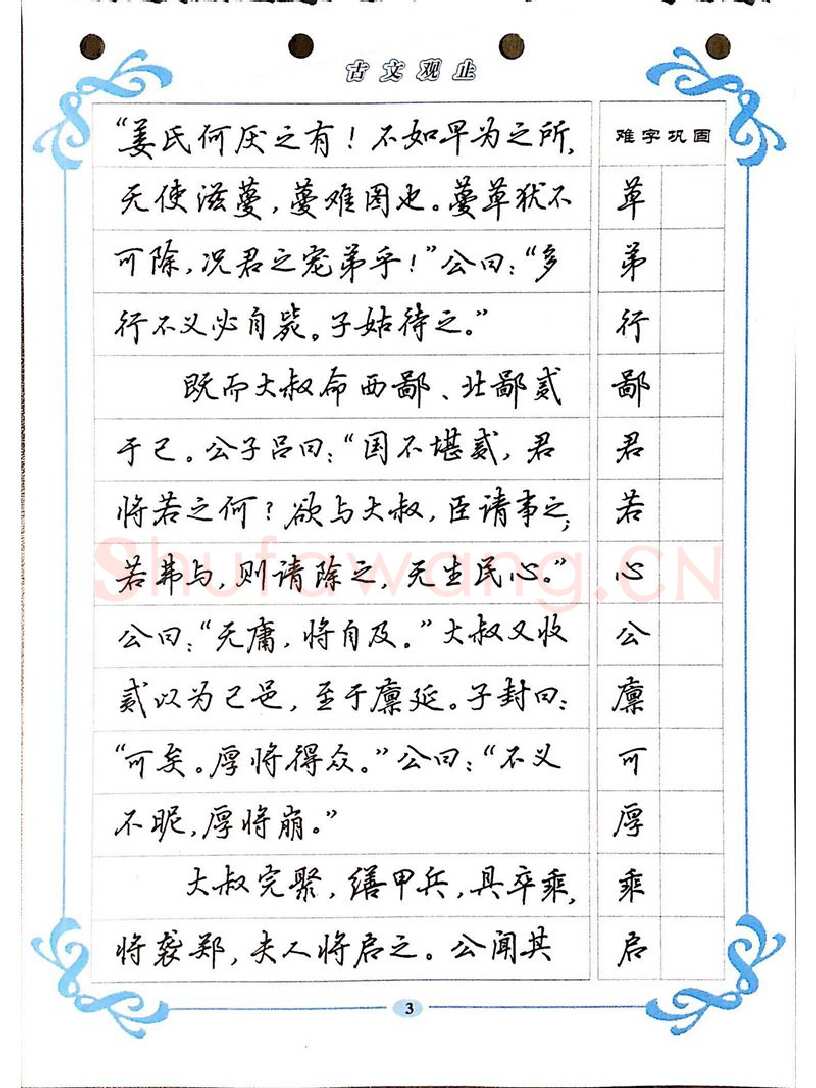 古文观止
“姜氏何厌之有！不如早为之所，
无使滋蔓，蔓难图也。蔓草犹不
可除，况君之宠弟乎！”公曰：“多
行不义必自毙。子姑待之。”
既而大叔命西鄙、北鄙贰
于己。公子吕曰：“国不堪贰，君
将若之何？欲与大叔，臣请事之；
若弗与，则请除之，无生民心。”
公曰：“无庸，将自及。”大叔又收
贰以为己邑，至于廪延。子封曰：
“可矣。厚将得众。”公曰：“不义
不昵，厚将崩。”
大叔完聚，缮甲兵，具卒乘，
将袭郑，夫人将启之。公闻其
难字巩固
草
弟
行
鄙
君
若
心
公
廪
可
厚
乘
启
Shufawang.CN
3